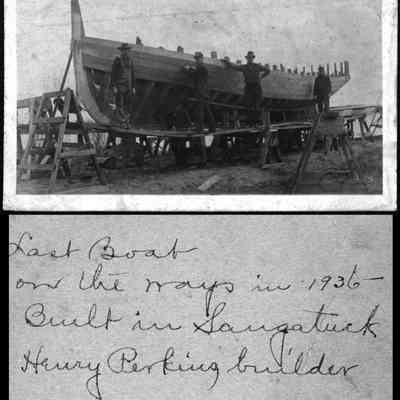 Last Boat
on the ways in 1936
Built in Saugatuck
Henry Perking builder